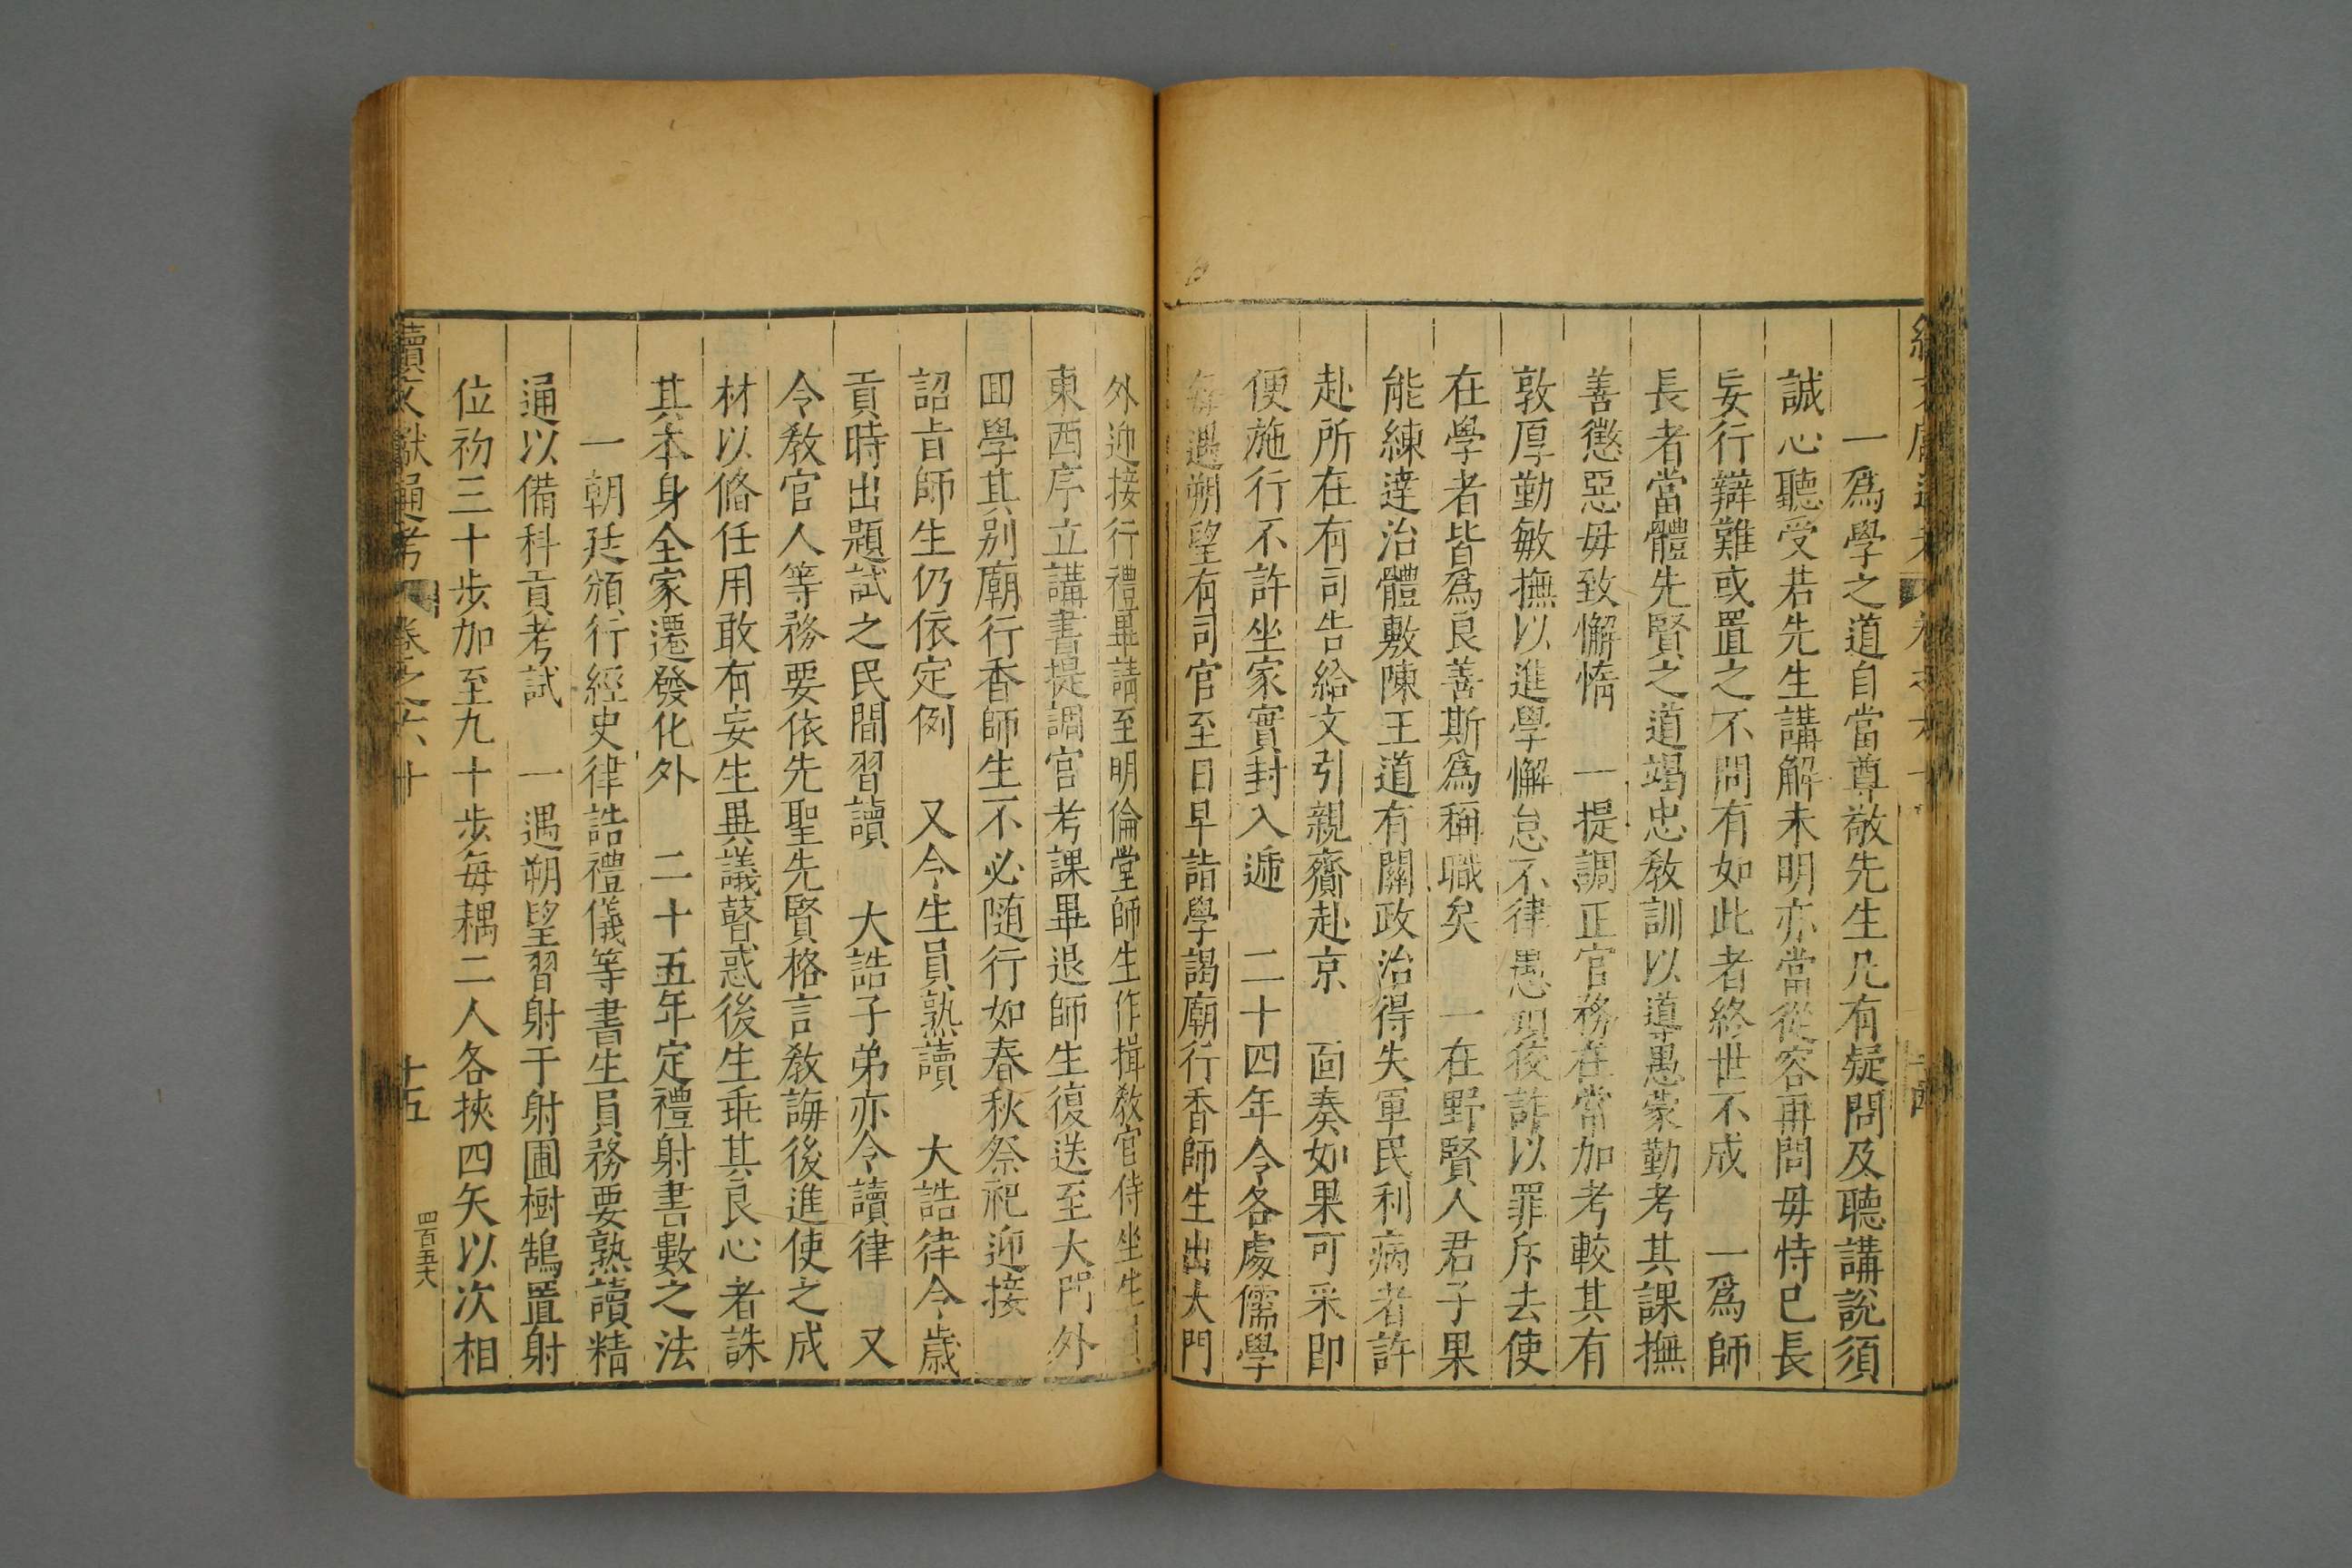 一爲學之道自當尊敬先生凡有疑問及聽講說須
誠心聽受若先生講解未明亦當從容再問毋恃已長
妄行辯難或置之不問有如此者終世不成　一爲師
長者當體先賢之道竭忠敎訓以導愚蒙勤考其課撫
善懲惡毋致懈惰　一提調正官務在常加考較其有
敦厚勤敏撫以進學懈怠不律愚頑狡詐以罪斥去使
在學者皆爲良善斯爲稱職矣　一在野賢人君子果
能練達治體敷陳王道有關政治得失軍民利病者許
赴所在有司告給文引親齎赴京　面奏如果可采即
便施行不許坐家實封入遞　二十四年令各處儒學
每遇朔望有司官至日早詣學謁廟行香師生出大門
外迎接行禮畢請至明倫堂師生作揖敎官侍坐生員
東西序立講書提調官考課畢退師生復送至大門外
囬學其别廟行香師生不必随行如春秋祭祀迎接
詔㫖師生仍依定例　又令生員熟讀　大誥律令歲
貢時出題試之民間習讀　大誥子弟亦令讀律　又
令敎官人等務要依先聖先賢格言敎誨後進使之成
材以俻任用敢有妄生異議瞽惑後生乖其良心者誅
其本身全家遷發化外　二十五年定禮射書數之法
一朝廷頒行經史律誥禮儀等書生員務要熟讀精
通以備科貢考試　一遇朔望習射于射圃樹鵠置射
位初三十步加至九十步每耦二人各挾四矢以次相
續文獻通考　卷之六十　十五
四百五六